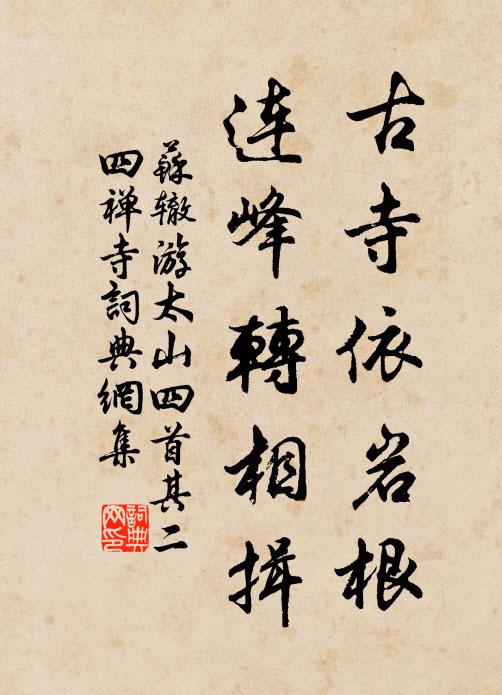 古寺依岩根
连峰轉相揖
蘇辙游太山四首其二
四禅寺詞典網集
詞典网印